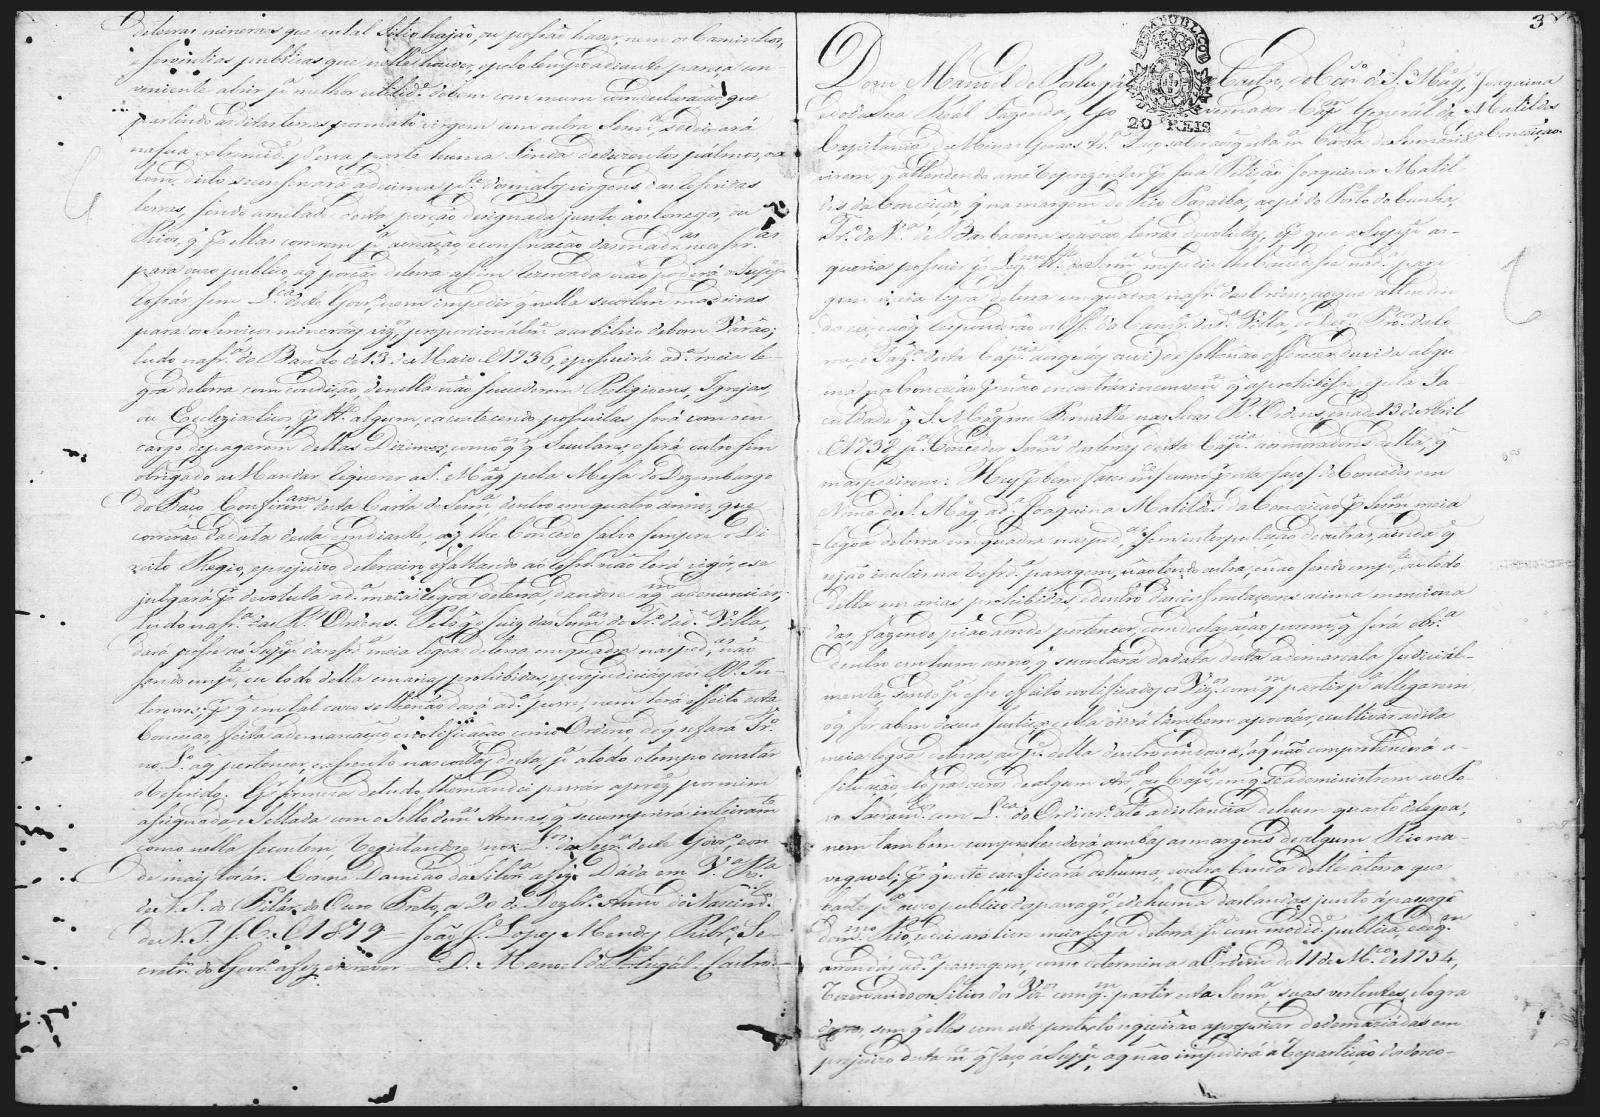 deterras mineraes que em tal Sitio hajão, ou possão haver, nem os Caminhos,
e Serventias publicas que nelle houver, e pelo tempo adiante pareça con-
veniente abrir pª melhor utilidᵉ do bem commum com declaração, que
partindo as ditas terras por mato virgem com outra Sesmª, se deixará
na sua extremidᵉ pʳ essa parte huma Linda de duzentos palmos, ou
tem dito se conservará a decima pᵗᵉ dos matos virgens das referidas
terras, sendo ametade desta porção designada junto aos Corregos, ou
Rios, q̃ pʳ ellas correrem, pª creação, e conservação das madrᵃˢ necessrᵃˢ
para o uso publico, a q̃ porção deterra assim rezervada não poderá o Suppᵉ
rossar sem Lᶜᵃ deste Govᵒ, nem impedir q̃ nella se cortem madeiras
para os Serviços mineraes vizᵒˢ proporcionalmᵉ a arbitrio de bom Varão;
tudo na frª do Bando de 13 de Maio d'1736, e possuirá a dª meia le-
goa deterra com condição, de nella não sucederem Religioens, Igrejas,
ou Ecleziasticos, pʳ tᵒ algum, e acontecendo possuilas será com o en-
cargo de pagarem dellas Dizimos, como q̃ q̃ Seculares, e será outro sim
obrigado a Mandar requerer a S. Magᵉ pela Mesa do Dezembargo
do Paço Confirmᵃᵐ desta Carta de Sesmª dentro em quatro annos, que
correrão da data desta em diante, a q̃ lhe Concedo salvo sempre o Di-
reito Regio, e prejuizo de terceiro, e faltando ao refᵒ não terá vigor, e se
julgará pʳ devoluta a dª meia legoa deterra, dandose a q̃ᵐ a denunciar;
tudo na frª das Rˢ Ordens. Pelo q̃ o Juiz das Sesmᵃˢ do Trᵒ da dª Villa,
dará posse ao Suppᵉ da refª meia legoa deterra em quadra nas pedᵃˢ, não
sendo em pᵗᵉ, ou todo della em areas prohibidas, e prejudiciaes aos Rˢ In-
teresses; pʳ q̃ em tal caso se lhe não dará a dª posse, nem terá effeito esta
Concessão, feita a demarcação, e notificação como Ordeno, de q̃ se fará Trᵒ
no Lᵒ a q̃ pertencer, e assento nas costas desta, pª a todo o tempo constar
o referido. Pʳ firmeza detudo lhe mandei passar a prezᵉ por mim
assignada e Sellada com o Sello de mᵃˢ Armas, q̃ se cumprirá inteiramᵗᵉ
como nella se contem, Registandose nos Lᵒˢ da Secrª deste Govᵒ, e on
de mais tocar. Cosme Damião da Silvª a fez. Dada em Vª Rᶜᵃ
de N. S. do Pilar do Ouro Preto, a 20 de Dezbᵒ Anno do Nascimᵗᵒ
de N. S. J. C. d'1819 = João Jᵉ Lopes Mendes Ribrᵒ, Se-
cretrᵒ do Govᵒ a fez escrever = D. Manoel de Portugal e Castro. =
3
REPUBLICO
20 REIS
Dom Manoel de Portugal e Castro, do Conᵒ de S. Magᵉ,
e do de sua Real Fazenda, Governador e Capᵐ General da
Capitania de Minas Geraes &ª Faço saber aos q̃ esta mª Carta de Sesmaria
Joaquina
Matildes
da Conceição
virem, q̃ attendendo a me reprezentar pʳ sua Petição Joaquina Matil-
des da Conceição, q̃ na margem do Rio Paraiba, ao pé do Porto do Cunha,
Trᵒ da Vª de Barbacena se achão terras devolutas, e pʳ que a Suppᵉ as
queria possuir pʳ Legᵐᵒ tᵒ de Sesmª me pedia lhe Concedesse na dª para
gem meia legoa deterra em quadra na frª das Ordens, ao que attenden
do eu, e ao q̃ responderão os Offᵉˢ da Camrª da dª Villa, e os Drᵉˢ Procᵒʳ da Co
roa, e Fazᵈª desta Capnᶦᵃ (aos quaes ouvi) de se lhe não offerecer duvida algu
ma na Concessão pʳ não encontrar inconvenᵉ q̃ a prohibisse, e pela Fa
culdade q̃ S. Magᵉ me Permitte nas suas Rˢ Ordens, e na de 13 de Abril
d'1738 pª Conceder Sesmᵃˢ das terras desta Capnᶦᵃ aos moradores della, q̃
mas pedirem: Hey pʳ bem fazer mᶜᵉ (como pʳ esta faço) de Conceder em
Nome de S. Magᵉ, a dª Joaquina Matildes da Conceição pʳ Sesmª meia
legoa deterra em quadra nas pedᵃˢ sem interpolação de outras, ainda q̃
sejão inuteis na refrᵈª paragem, não tendo outra, e não sendo em pᵗᵉ, ou todo
della em areas prohibidas, e dentro das confrontaçoens acima menciona
das, fazendo pião aonde pertencer, com declaração porem, q̃ será obrᵈª
dentro em hum anno, q̃ se contará da data desta a demarcala Judicial-
mente, sendo pª esse effeito notificados os Vizᵒˢ com q̃ᵐ partir, pª allegarem
o q̃ for a bem de sua Justiça, e ella o será tambem a povoar, e cultivar a dita
meia legoa deterra, ou pᵗᵉ della dentro em dous aᵒˢ, a q̃ não comprehenderá a
situação, e logradouros de algum Arrᵃˡ, ou Capᵉˡª, em q̃ se administrem ao Po
vo Sacramᵗᵒˢ com Lᶜᵃ do Ordinrᵒ até a distancia de hum quarto de legoa,
nem tambem comprehenderá ambas as margens de algum Rio na-
vegavel; pʳ q̃ neste caso ficará de huma, e outra banda delle a terra que
baste pª o uso publico dos passagrᵒˢ, e de huma das bandas junto á passagᵉ
do mesmo Rio, se deixará livre meia legoa deterra pª commodidᵉ publica, e de q̃ᵐ
arrendar a dª passagem, como determina a Ordem de 11 de Mᶜᵒ de 1754,
rezervando os Sitios dos Vizᵒˢ com q̃ᵐ partir esta Sesmª, suas vertentes, e logra
douros, sem q̃ elles com este pretexto se queirão apropriar de demaziadas em
prejuizo desta mᶜᵉ q̃ faço á Suppᵉ, a q̃ não impedirá a repartição dos desco-